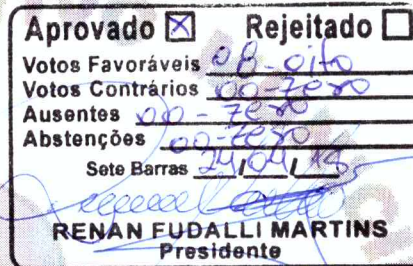 Aprovado ☒ Rejeitado ☐
Votos Favoráveis 08-oito
Votos Contrários 00-zero
Ausentes 00-zero
Abstenções 00-zero
Sete Barras 24/04/18
RENAN FUDALLI MARTINS
Presidente